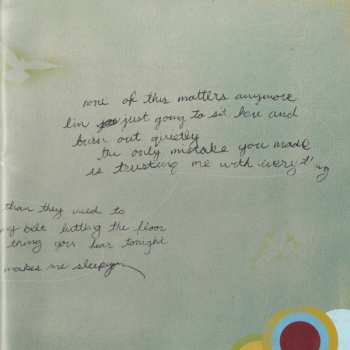 none of this matters anymore
i'm just going to sit here and
burn out quietly
the only mistake you made
is trusting me with everything
than they used to
my belt hitting the floor
thing you hear tonight
makes me sleepy